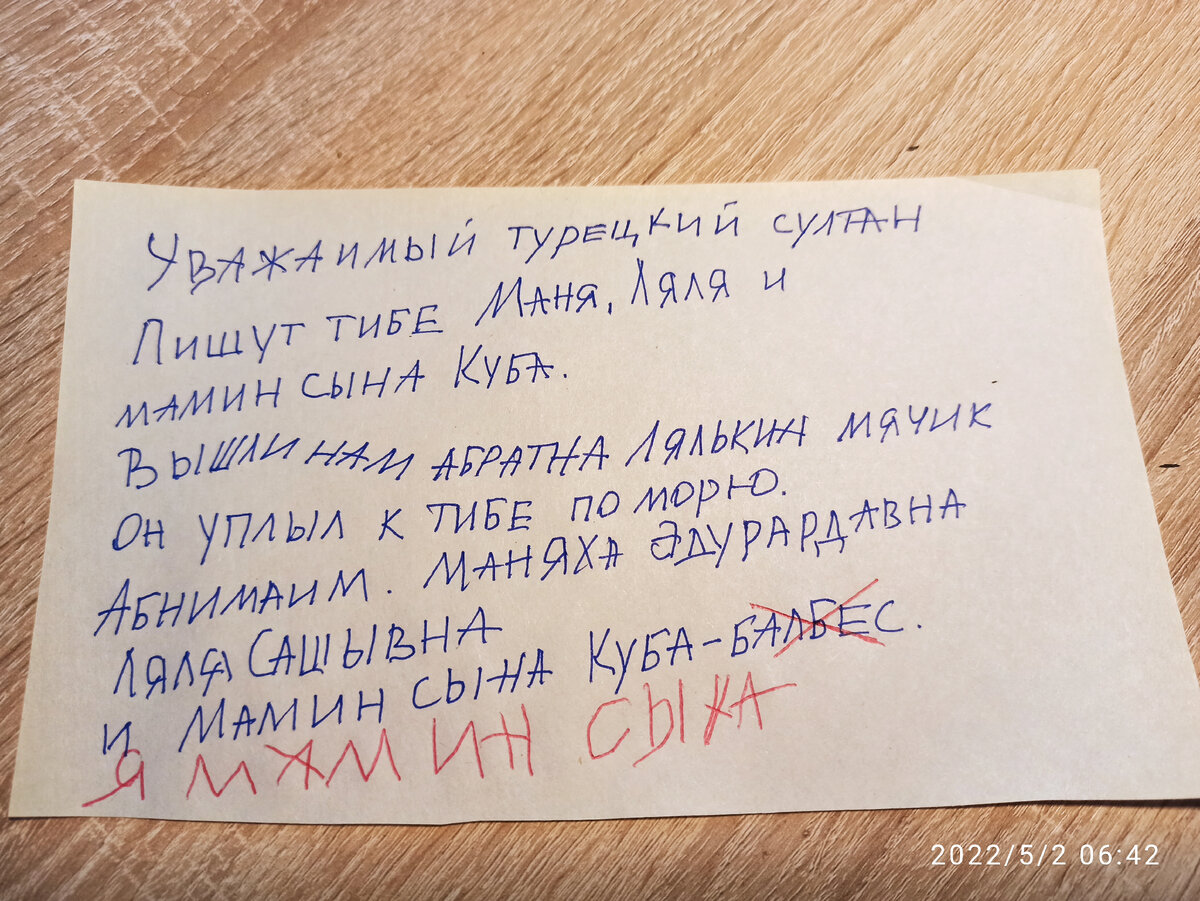 Уважаимый турецкий султан
Пишут тибе Маня, Ляля и
мамин сына Куба.
Вышли нам абратна Лялькин мячик
он уплыл к тибе по морю.
Абнимаим. Маняха Эдурардавна
Ляля Сашывна
и Мамин сына Куба-балбес.
Я мамин сына
2022/5/2 06:42